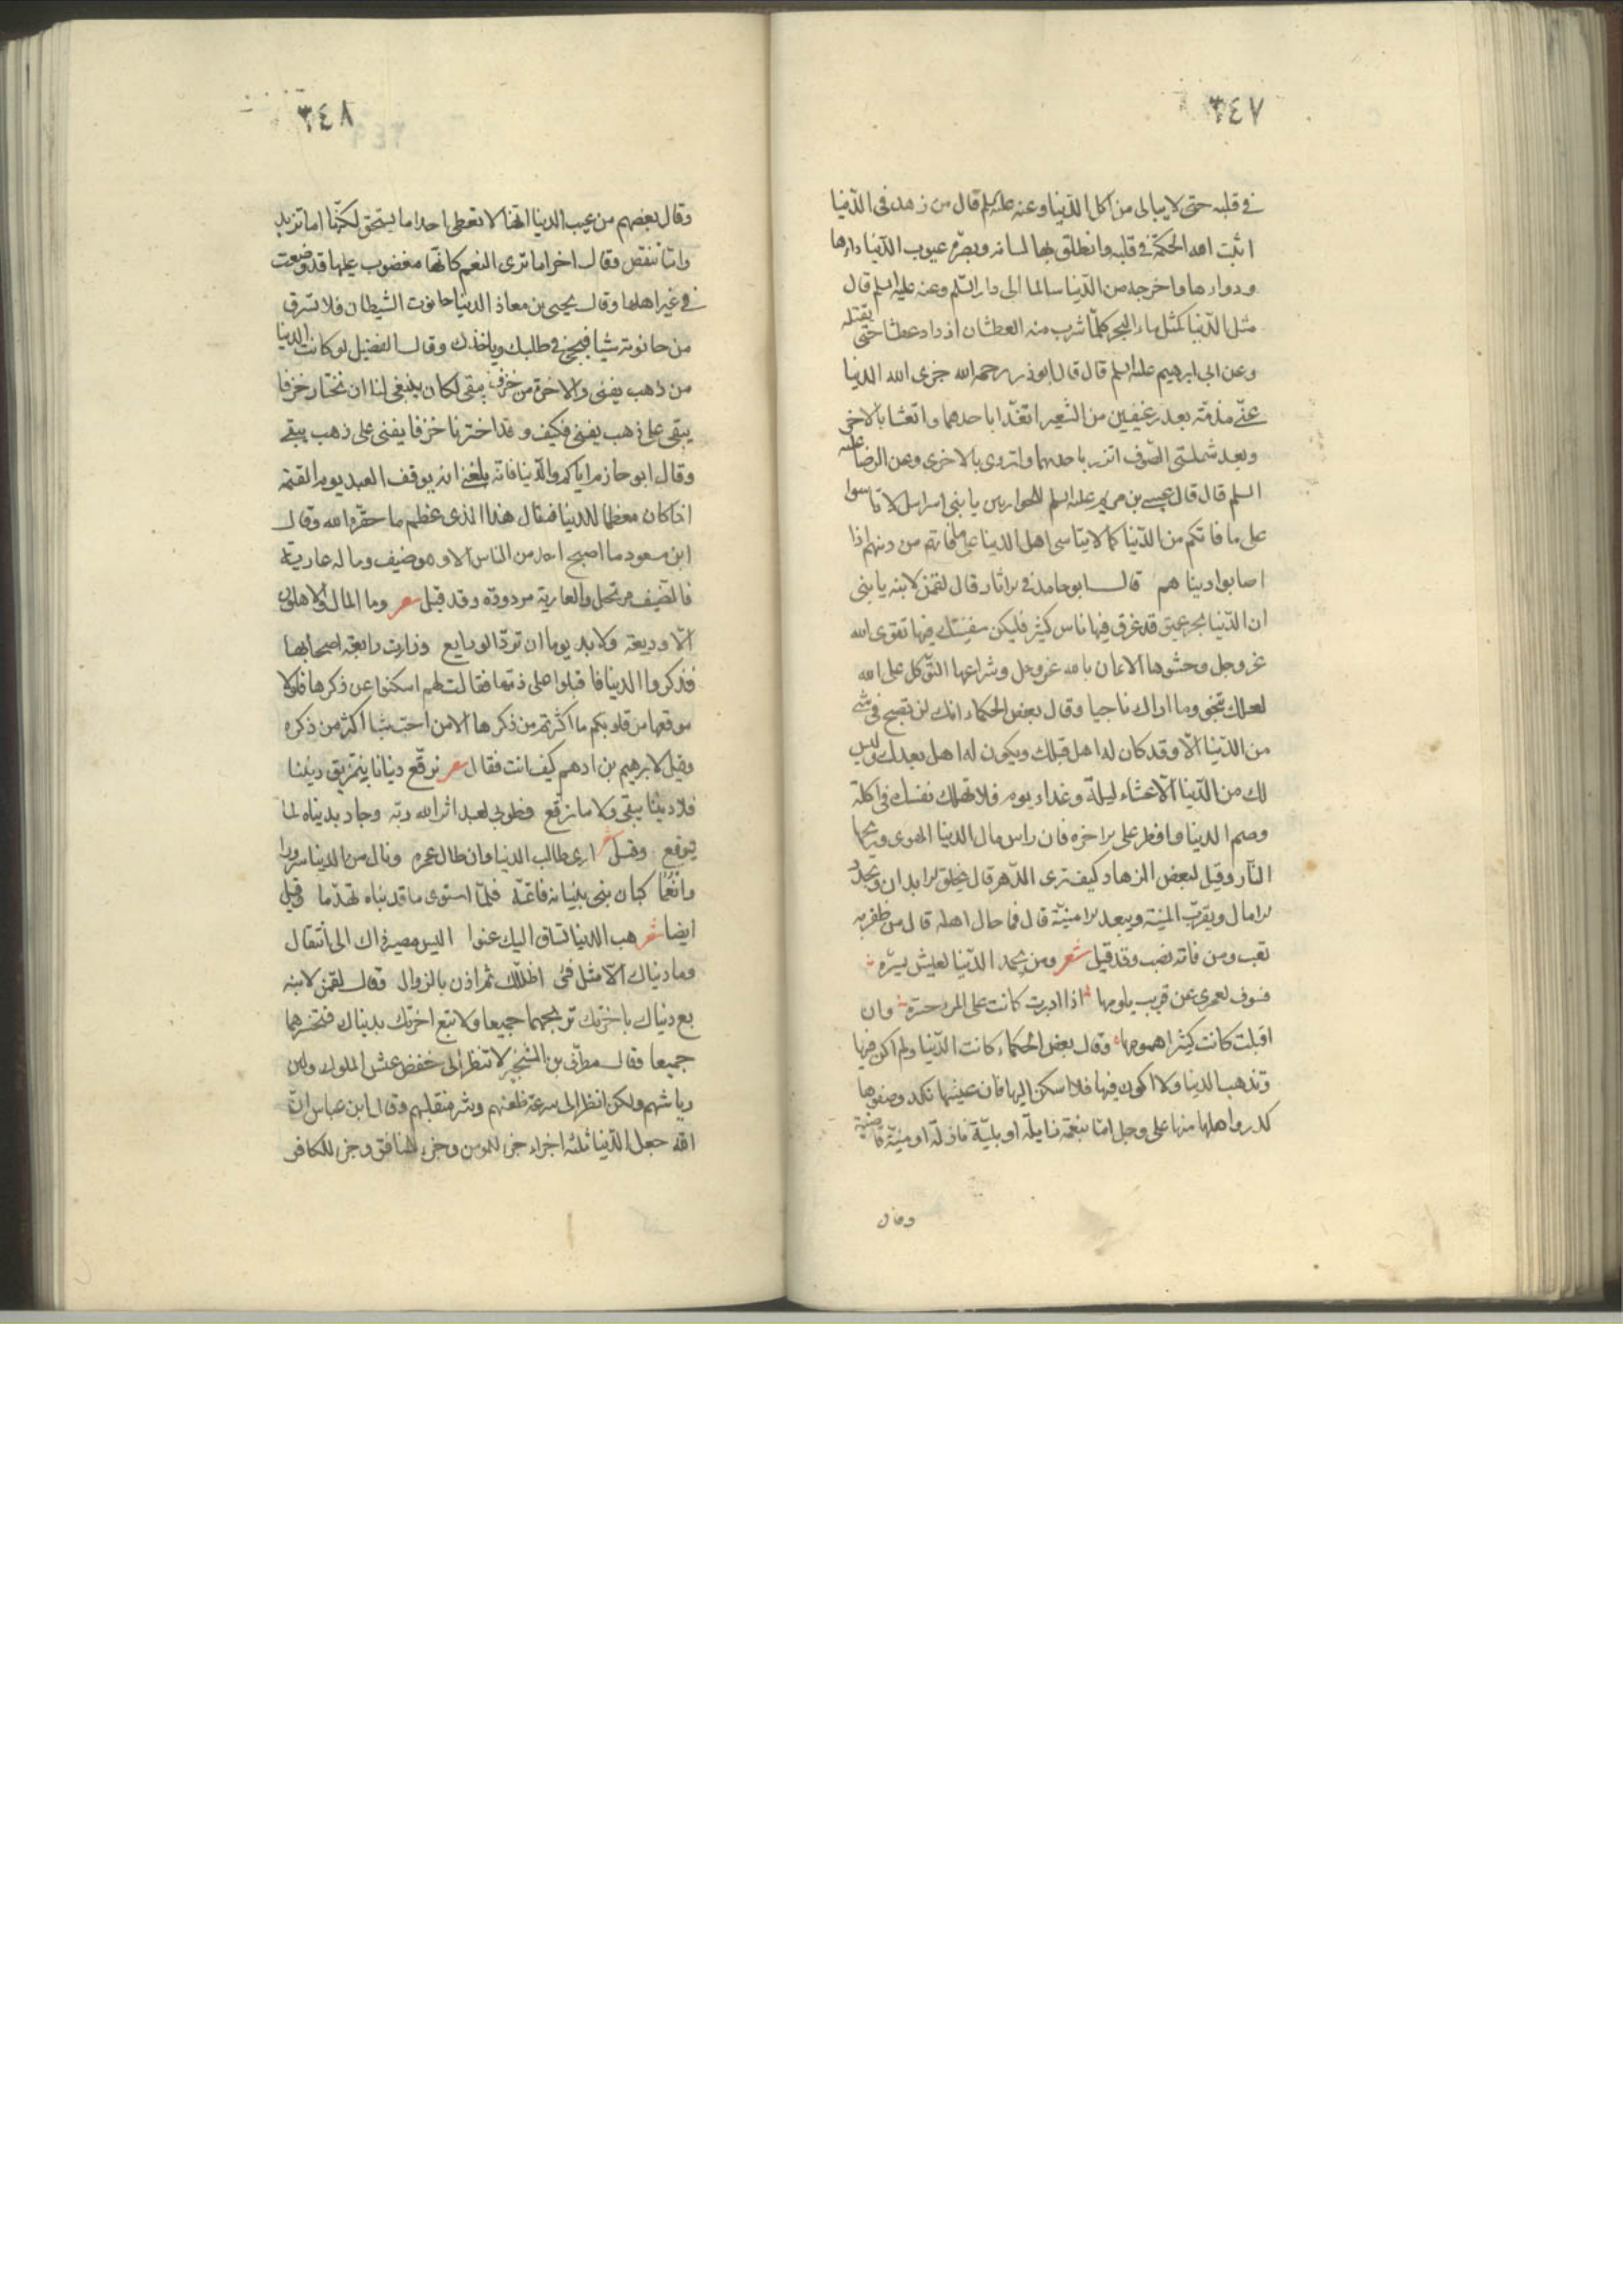 ٣٤٧
في قلبه حتى لا يبالى من اكل الدّنيا وعنه عليه السلم قال من زهد فى الدّنيا
اثبت الله الحكمة في قلبه وانطلق بها لسانه وبصّره عيوب الدّنيا داءها
ودواءها واخرجه من الدّنيا سالما الى دار السّلم وعنه عليه السلم قال
مثل الدّنيا كمثل ماء البحر كلّما شرب منه العطشان ازداد عطشا حتى يقتله
وعن ابى ابرهيم عليه السلم قال قال ابوذر رحمه الله جزى الله الدنيا
عنّي مذمّة بعد رغيفين من الشعير اتغدّا باحدهما واتعشّا بالاخر
وبعد شملتى الصّوف اتزر باحديهما واتردى بالاخرى وعن الرضا عليه
السلم قال قال عيسى بن مريم عليه السلم للحواريين يا بنى اسرائيل لا تاسوا
على ما فاتكم من الدّنيا كما لا يتاسى اهل الدنيا على ما فاتهم من دينهم اذا
اصابوا دنيا هم قال ابو حامد في الاثار وقال لقمن لابنه يا بنى
ان الدّنيا بحر عميق قد غرق فيها ناس كثير فليكن سفينتك فيها تقوى الله
عز وجل وحشوها الايمان بالله عز وجل وشراعها التوّكل على الله
لعلك تنجو وما اراك ناجيا وقال بعض الحكماء انك لن تصبح فى شئ
من الدّنيا الّا وقد كان له اهل قبلك ويكون له اهل بعدك وليس
لك من الدّنيا الّا عشاء ليلة وغداء يوم فلا تهلك نفسك فى اكلة
وصم الدنيا وافطر على الاخرة فان راس مال الدنيا الهوى وربحها
النّار وقيل لبعض الزهاد كيف ترى الدّهر قال يخلق الابدان ويجدد
الامال ويقرّب المنية ويبعد الامنيّة قال فما حال اهله قال من ظفر به
تعب ومن فاته نصب وقد قيل شعر ومن يحمد الدّنيا لعيش يسرّه
فسوف لعمرى عن قريب يلومها اذا ادبرت كانت على المرء حسرة وان
اقبلت كانت كثيرا همومها وقال بعض الحكماء كانت الدّنيا ولم اكن فيها
وتذهب الدنيا ولا اكون فيها فلا اسكن اليها فان عيشها نكد وصفوها
كدر واهلها منها على وجل امّا بنعمة زايلة او بليّة نازلة او منيّة قاضية
وقال
٣٤٨
وقال بعضهم من عيب الدنيا انّها لا تعطى احدا ما يستحق لكنّها اما تزيد
وامّا تنقص وقال اخر اما ترى النعم كانّها مغضوب عليها قد وضعت
في غير اهلها وقال يحيى بن معاذ الدنيا حانوت الشيطان فلا تسرق
من حانوته شيا فيجئ في طلبك وياخذك وقال الفضيل لو كانت الدنيا
من ذهب يفنى والاخرة من خزف يبقى لكان ينبغى لنا ان نختار خزفا
يبقى على ذهب يفنى فكيف وقد اخترنا خزفا يفنى على ذهب يبقى
وقال ابو حازم اياكم والدّنيا فانّه بلغنى انه يوقف العبد يوم القيمة
اذا كان معظما للدنيا فيقال هذا الذى عظم ما حقّره الله وقال
ابن مسعود ما اصبح احد من الناس الا وهو ضيف وماله عارية
فالضيف مرتحل والعارية مردودة وقد قيل شعر وما المال والاهلون
الّا وديعة ولا بد يوما ان تردّ الودايع وزارت رابعة اصحابها
فذكروا الدنيا فاقبلوا على ذمّها فقالت لهم اسكتوا عن ذكرها فلولا
موقعها من قلوبكم ما اكثرتم من ذكرها الا من احب شيا اكثر من ذكره
وقيل لابرهيم بن ادهم كيف انت فقال شعر نرقّع دنيانا بتمزيق ديننا
فلا ديننا يبقى ولا ما نرقع فطوبى لعبد اثر الله ربّه وجاد بدنياه لما
يتوقع وقيل شعر ارى طالب الدنيا وان طال عمره ونال من الدنيا سرورا
وانعُما كبان بنى بنيانه فاتمّه فلمّا استوى ما قد بناه تهدّما وقيل
ايضا شعر هب الدنيا تساق اليك عفوا اليس مصير ذاك الى انتقال
وما دنياك الّا مثل فئ اظلّك ثم اذن بالزوال وقال لقمن لابنه
بع دنياك باخرتك تربحهما جميعا ولا تبع اخرتك بدنياك فتخسرهما
جميعا وقال مطرّف بن الشخير لا تنظر الى خفض عيش الملوك ولين
رياشهم ولكن انظر الى سرعة ظعنهم وشر منقلبهم وقال ابن عباس انّ
الله جعل الدّنيا ثلثة اجزاء جزء للمومن وجزء للمنافق وجزء للكافر